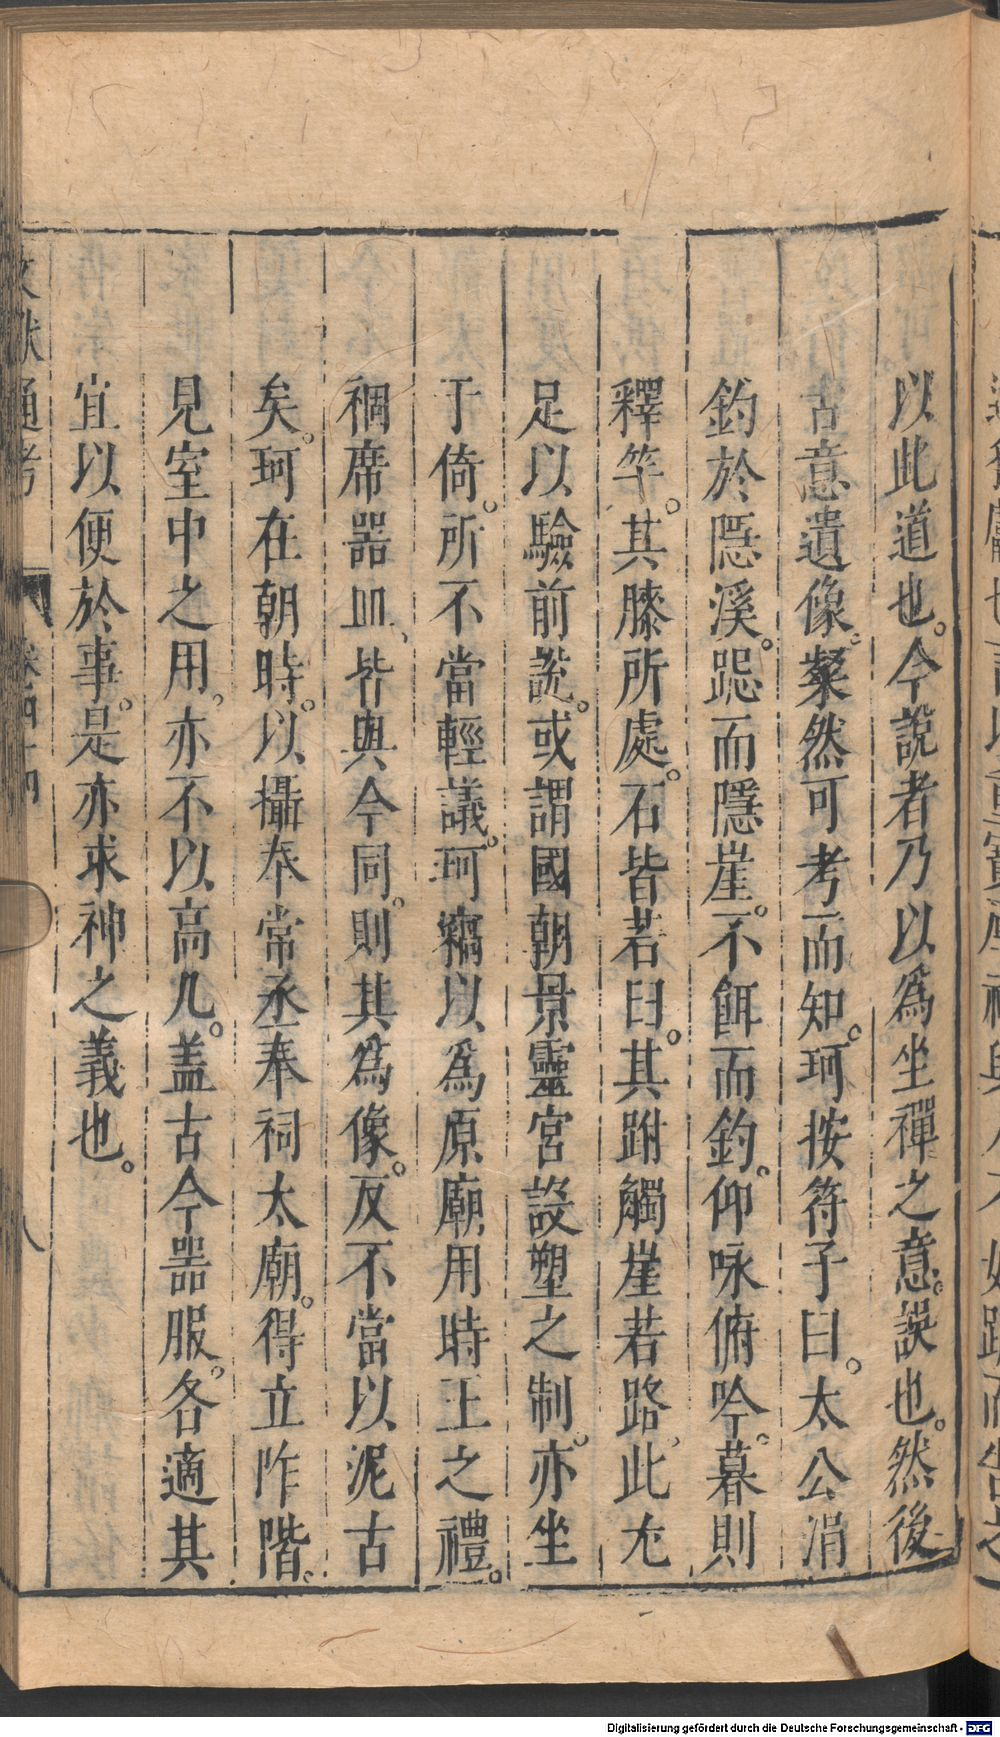 以此道也。今說者乃以為坐禪之意。誤也。然後
古意遺像。粲然可考而知。珂按符子曰。太公涓
釣於隱溪。跽而隱崖。不餌而釣。仰咏俯吟。暮則
釋竿。其膝所處。石皆若臼。其跗觸崖若路。此尤
足以驗前說。或謂國朝景靈宮設塑之制。亦坐
于倚。所不當輕議。珂竊以為原廟用時王之禮。
裀席器皿、皆與今同。則其為像。反不當以泥古
矣。珂在朝時。以攝奉常丞奉祠太廟。得立阼階。
見室中之用、亦不以高几。盖古今器服。各適其
宜以便於事。是亦求神之義也。
文獻通考 卷四十四 八
Digitalisierung gefördert durch die Deutsche Forschungsgemeinschaft - DFG